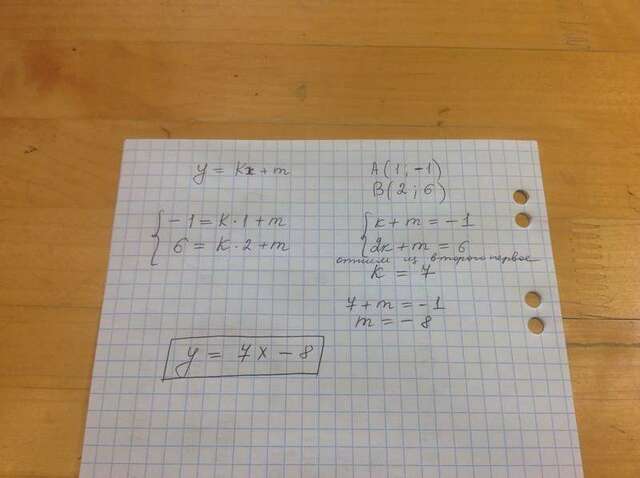 y = kx + m
A(1; -1)
B(2; 6)
{ -1 = k·1 + m
6 = k·2 + m
{ k + m = -1
2k + m = 6
отнием из второго первое
k = 7
7 + m = -1
m = -8
y = 7x - 8